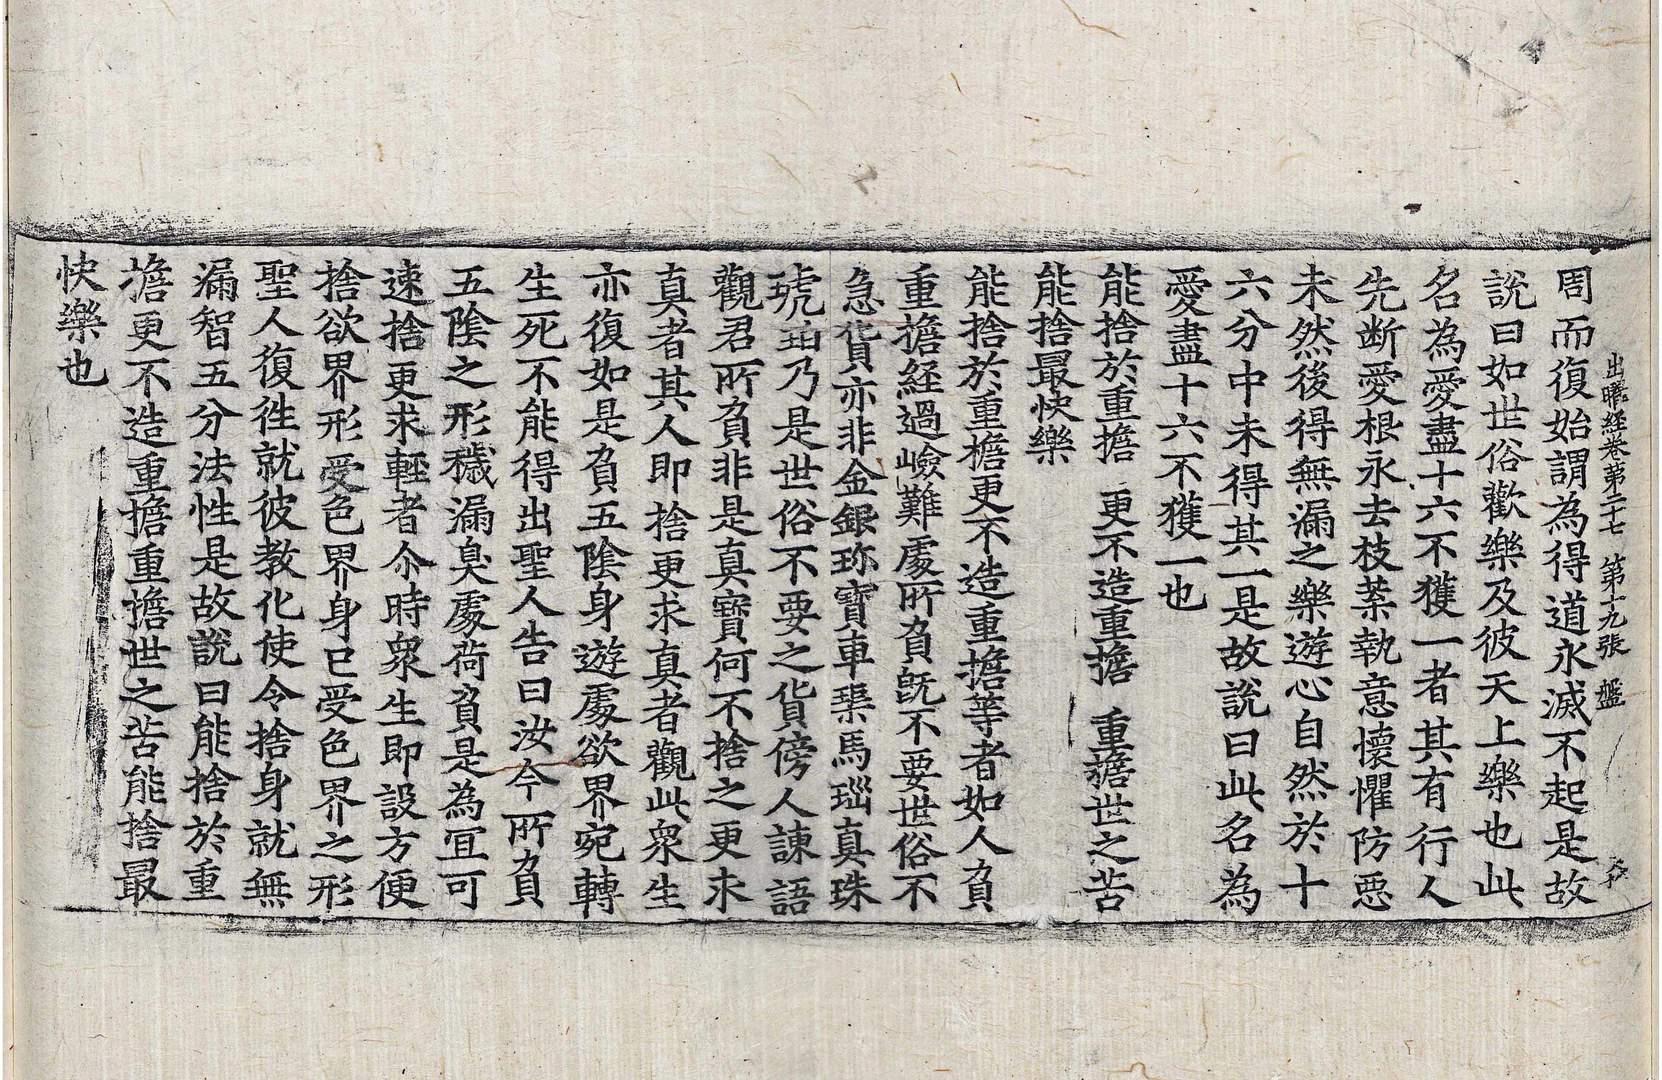 出曜経卷第二十七 第十九張 盤
周而復始謂為得道永滅不起是故
說曰如世俗歡樂及彼天上樂也此
名為愛盡十六不獲一者其有行人
先断愛根永去枝葉執意懷懼防惡
未然後得無漏之樂遊心自然於十
六分中未得其一是故說曰此名為
愛盡十六不獲一也
能捨於重擔 更不造重擔 重擔世之苦
能捨最快樂
能捨於重擔更不造重擔等者如人負
重擔経過嶮難處所負旣不要世俗不
急貨亦非金銀珎寶車𤦲馬瑙真珠
琥珀乃是世俗不要之貨傍人諫語
觀君所負非是真寶何不捨之更求
真者其人即捨更求真者觀此衆生
亦復如是負五陰身遊處欲界宛轉
生死不能得出聖人告曰汝今所負
五陰之形穢漏臭處荷負是為冝可
速捨更求輕者尒時衆生即設方便
捨欲界形受色界身已受色界之形
聖人復徃就彼教化使令捨身就無
漏智五分法性是故說曰能捨於重
擔更不造重擔重擔世之苦能捨最
快樂也